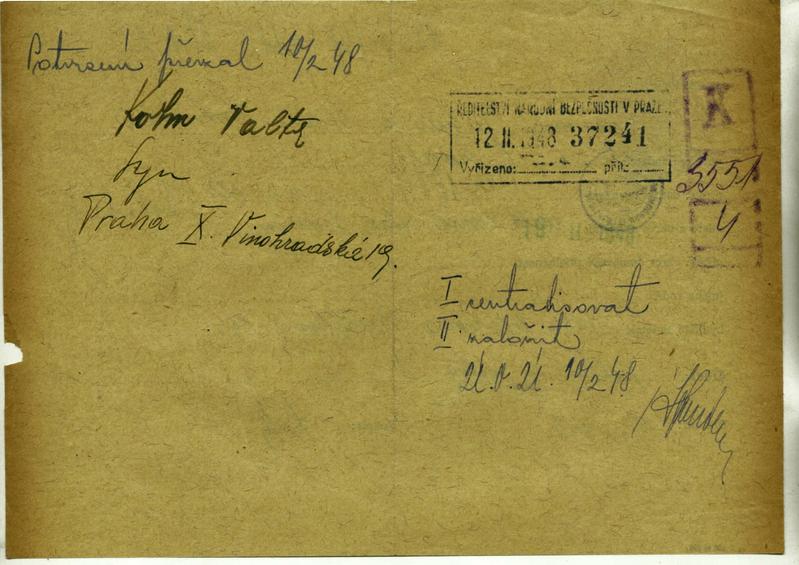 Potvrzení převzal 10/2 48
Kohn Valtr
syn
Praha X. Vinohradská 19.
ŘEDITELSTVÍ NÁRODNÍ BEZPEČNOSTI V PRAZE
12 II. 1948 37241
Vyřízeno: příl:
X
5551
4
I centralisovat
II naložit
10/2 48